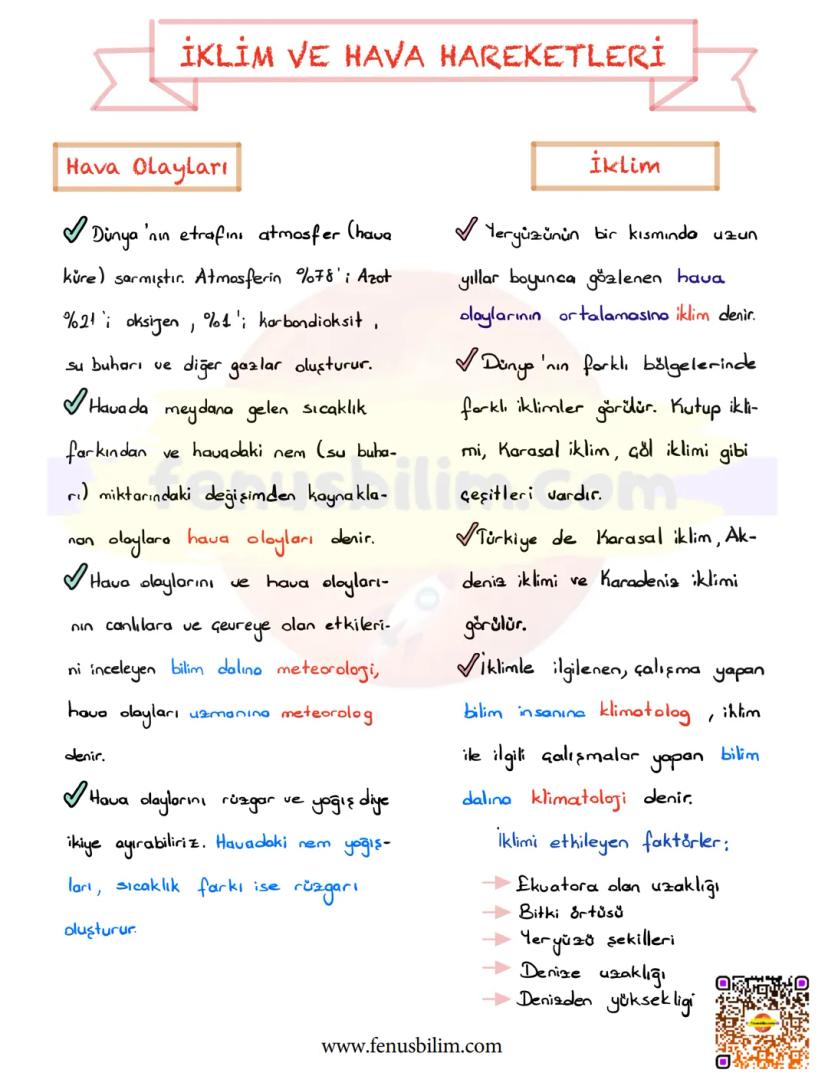 İKLİM VE HAVA HAREKETLERİ
Hava Olayları
✓ Dünya'nın etrafını atmosfer (hava
küre) sarmıştır. Atmosferin %78'i Azot
%21'i oksijen, %1'i karbondioksit,
su buharı ve diğer gazlar oluşturur.
✓ Havada meydana gelen sıcaklık
farkından ve havadaki nem (su buha-
rı) miktarındaki değişimden kaynakla-
nan olaylara hava olayları denir.
✓ Hava olaylarını ve hava olayları-
nın canlılara ve çevreye olan etkileri-
ni inceleyen bilim dalına meteoroloji,
hava olayları uzmanına meteorolog
denir.
✓ Hava olaylarını rüzgar ve yağış diye
ikiye ayırabiliriz. Havadaki nem yağış-
ları, sıcaklık farkı ise rüzgarı
oluşturur.
İklim
✓ Yeryüzünün bir kısmında uzun
yıllar boyunca gözlenen hava
olaylarının ortalamasına iklim denir.
✓ Dünya'nın farklı bölgelerinde
farklı iklimler görülür. Kutup ikli-
mi, Karasal iklim, Çöl iklimi gibi
çeşitleri vardır.
✓ Türkiye de Karasal iklim, Ak-
deniz iklimi ve Karadeniz iklimi
görülür.
✓ İklimle ilgilenen, çalışma yapan
bilim insanına klimatolog, iklim
ile ilgili çalışmalar yapan bilim
dalına klimatoloji denir.
İklimi etkileyen faktörler:
→ Ekvatora olan uzaklığı
→ Bitki örtüsü
→ Yeryüzü şekilleri
→ Denize uzaklığı
→ Denizden yüksekligi
fenusbilim.com
www.fenusbilim.com